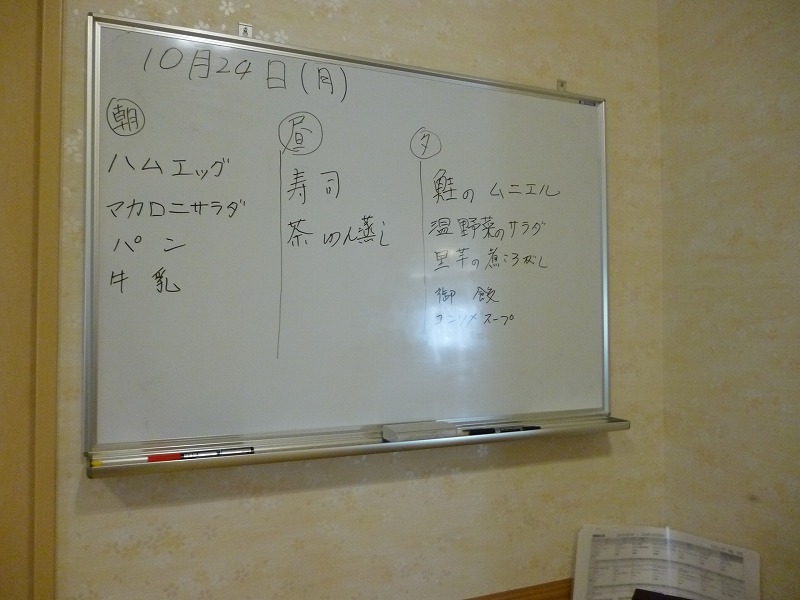 10月24日(月)
朝
ハムエッグ
マカロニサラダ
パン
牛乳
昼
寿司
茶わん蒸し
夕
鮭のムニエル
温野菜のサラダ
里芋の煮ころがし
御飯
コンソメスープ